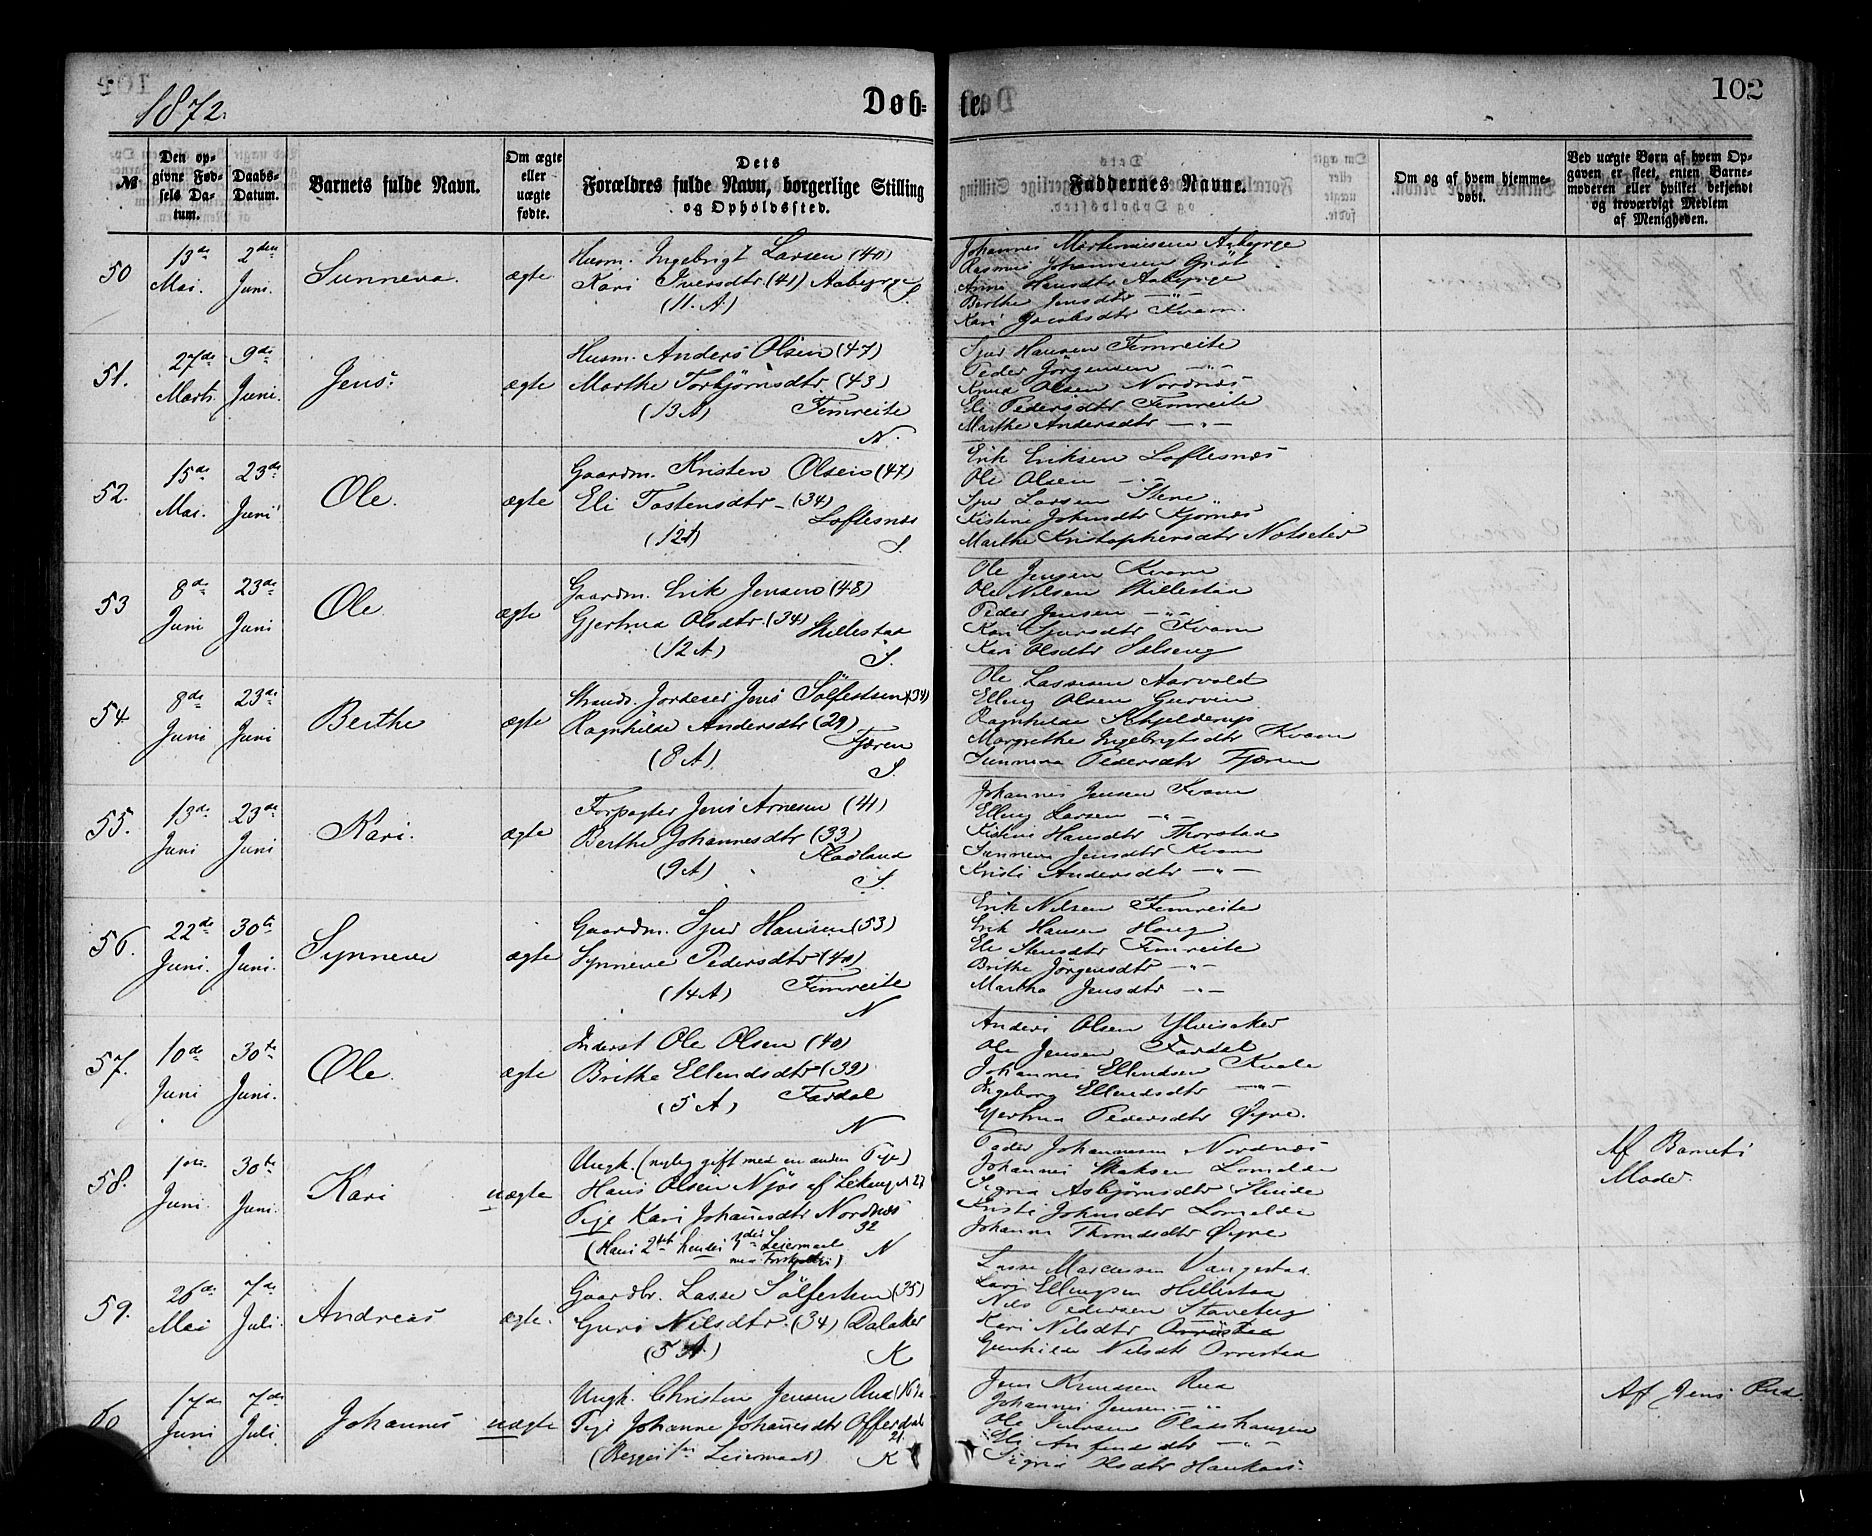 1872.
Døb-
te.
102
№
Den op-
givne Fød-
sels Da-
tum.
Daabs-
Datum.
Barnets fulde Navn.
Om ægte
eller
uægte
fødte.
Dets
Forældres fulde Navn, borgerlige Stilling
og Opholdssted.
Faddernes Navne.
Om og af hvem hjemme-
døbt.
Ved uægte Børn af hvem Op-
gaven er skeet, enten Barne-
moderen eller hvilket bekjendt
og troværdigt Medlem
af Menigheden.
50
13de
Mai.
2den
Juni.
Sunneva.
ægte
Husm. Ingebrigt Larsen (40)
Kari Iversdtr (41) Aaberge
(11. A)
S.
Johannes Aaberge
Rasmus Johannesen
Anna Hansdtr Aaberge
Berthe Jensdtr —"—
Kari Jacobsdtr Kvam.
51.
27de
Marts
9de
Juni.
Jens.
ægte
Husm. Anders Olsen (47)
Marthe Torbjørnsdtr (43)
(13 A) Fimreite
N.
Sjur Hansen Fimreite
Peder Jørgensen —"—
Knud Olsen Nordnæs
Eli Pedersdtr Fimreite
Marthe Andersdtr —"—
52.
15de
Mai.
23de
Juni
Ole.
ægte
Gaardm. Kristen Olsen (47)
Eli Tostensdtr (34)
Loftesnæs
(12A)
S.
Erik Eriksen Loftesnæs
Ole Olsen —"—
Sjur Larsen Stene
Kistine Johnsdtr Kjørnæs
Marthe Kristophersdtr Notseter
53
8de
Juni
23de
Juni
Ole
ægte
Gaardm. Erik Jensen (48)
Gjertrud Olsdtr (34) Skillestad
(12 A)
S.
Ole Jensen Kvam
Ole Nilsen Skillestad
Peder Jensen —"—
Kari Sjursdtr Kvam
Kari Olsdtr Sølseng
54
8de
Juni
23de
Juni
Berthe
ægte
Strands. Jordeier Jens Sølfestsen (34)
Ragnhilde Andersdtr (29)
Fjæren
(8 A)
S.
Ole Lassesen Aarvold
Elling Olsen Gurvin
Ragnhilde Schjelderup
Margrethe Ingebrigtsdtr Kvam
Sunneva Pedersdtr Fjæren
55.
13de
Juni
23de
Juni
Kari.
ægte
Forpagter Jens Arnesen (41)
Berthe Johannesdtr (33)
Fladland
(9 A)
S.
Johannes Jensen Kvam
Elling Larsen —"—
Kistine Hansdtr Thorstad
Sunneva Jensdtr Kvam
Kristi Andersdtr —"—
56.
22de
Juni.
30te
Juni.
Synneve
ægte
Gaardm. Sjur Hansen (53)
Synneve Pedersdtr (40)
(14 A) Fimreite
N
Erik Nilsen Fimreite
Erik Hansen Houg
Eli Stensdtr Fimreite
Brithe Jørgensdtr —"—
Martha Jensdtr —"—
57.
10de
Juni
30te
Juni.
Ole.
ægte
Inderst Ole Olsen (40)
Brithe Ellendsdtr (39)
(5 A) Fardal
N
Anders Olsen Ylvisaker
Ole Jensen Fardal
Johannes Ellendsen Kvale
Ingeborg Ellendsdtr —"—
Gjertrud Pedersdtr Øyre.
58.
1ste
Juni.
30te
Juni.
Kari
uægte
Ungk. (nylig gift med en anden Pige)
Hans Olsen Njøs af Lekanger 27
Pige Kari Johansdtr Nordnæs
32
(Hans 2det hendes 1ste Leiermaal
N
Peder Johannesen Nordnæs
Johannes Lomelde
Sigrid Asbjørnsdtr Slinde
Kristi Johnsdtr Lomelde
Johanna Thomdsdtr Øyre
Af Barnets
Moder.
59.
26de
Mai
7de
Juli.
Andreas
ægte.
Gaardbr. Lasse Sølfestsen (35)
Guri Nilsdtr. (34) Dalaker
(5 A)
K
Lasse Marcussen Vangestad
Lars Ellingsen Hillestad
Nils Pedersen Stavebrg
Kari Nilsdtr Orrestad
Gunhilde Nilsdtr Orrestad
60
17de
Juni
7de
Juli
Johannes
uægte
Ungk. Christen Jensen Rud
Pige Johanne Johansdtr Offerdal
21.
(Begges 1ste Leiermaal)
K
Jens Knudsen Rud
Johannes Jensen —"—
Ole Iversen Pladshaugen
Eli Anfindsdtr —"—
Sigrid Olsdtr Haukaas.
Af Jens Rud